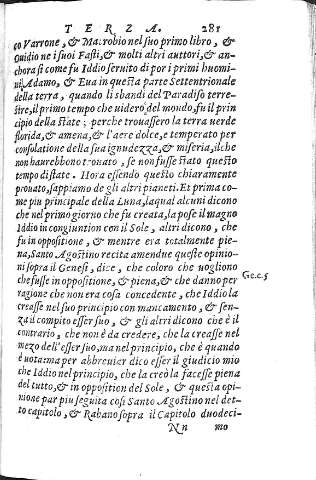 TERZA. 281
co Varrone, & Macrobio nel suo primo libro, &
Ouidio ne i suoi Fasti, & molti altri auttori, & an-
chora si come fu Iddio seruito di por i primi huomi-
ni, Adamo, & Eua in questa parte Settentrionale
della terra, quando li sbandi del Paradiso terre-
stre, il primo tempo che uidero del mondo, fu il prin-
cipio della state; perche trouassero la terra uerde
florida, & amena, & l'aere dolce, e temperato per
consolatione della sua ignudezza, & miseria, il che
non haurebbono trouato, se non fusse stato questo
tempo di state. Hora essendo questo chiaramente
prouato, sappiamo de gli altri pianeti. Et prima co-
me piu principale della Luna, laqual alcuni dicono
che nel primo giorno che fu creata, la pose il magno
Iddio in congiuntion con il Sole, altri dicono, che
fu in oppositione, & mentre era totalmente pie-
na, Santo Agostino recita amendue queste opinio-
ni sopra il Genesi, dice, che coloro che uogliono
che fusse in oppositione, & piena, & che danno per
Ge.c.5
ragione che non era cosa concedente, che Iddio la
creasse nel suo principio con mancamento, & sen-
za il compito esser suo, & gli altri dicono che è il
contrario, che non è da credere, che la creasse nel
mezo dell'esser suo, ma nel principio, che è quando
è uota: ma per abbreuier dico esser il giudicio mio
che Iddio nel principio, che la creò la facesse piena
del tutto, & in opposition del Sole, & questa opi-
nione par piu seguita cosi Santo Agostino nel det-
to capitolo, & Rabano sopra il Capitolo duodeci-
Nn mo